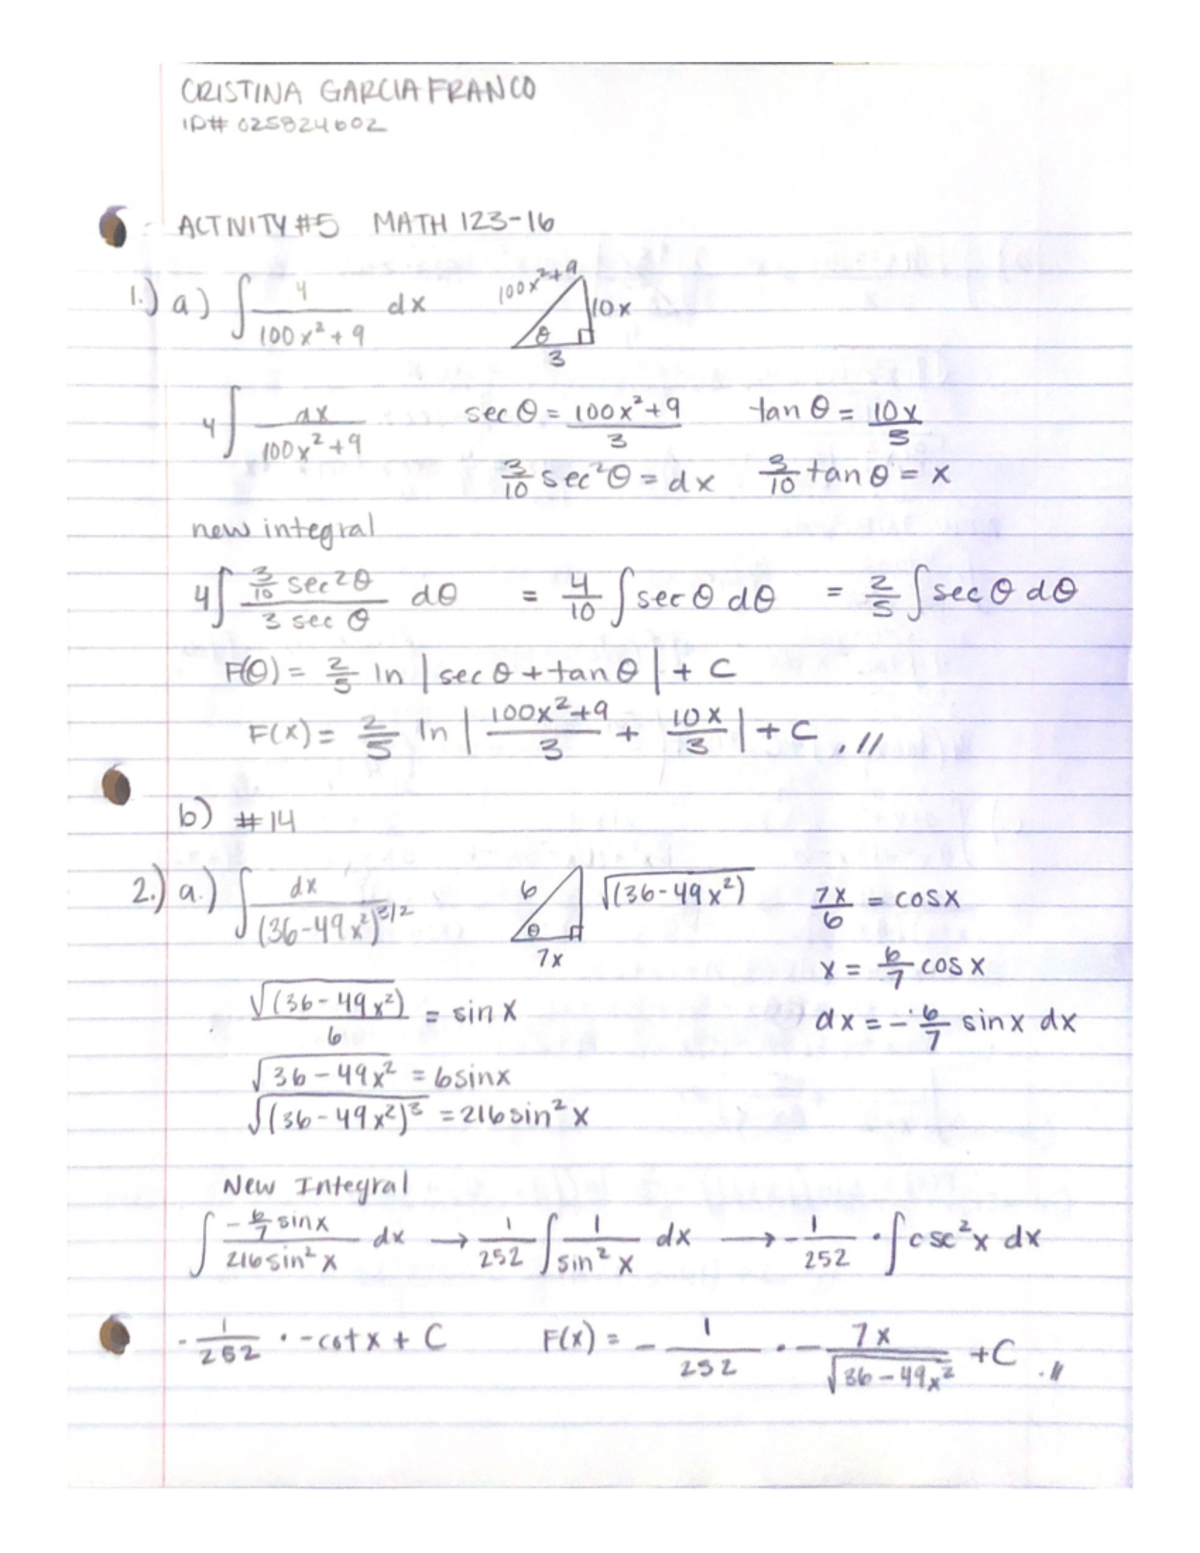 CRISTINA GARCIA FRANCO
ID# 025824602
ACTIVITY #5 MATH 123-16
1.) a) ∫ 4/(100x²+9) dx 100x²+9 10x θ 3
4∫ dx/(100x²+9) sec θ = (100x²+9)/3 tan θ = 10x/3
3/10 sec²θ = dx 3/10 tan θ = x
new integral
4∫ (3/10 sec²θ)/(3 sec θ) dθ = 4/10 ∫ sec θ dθ = 2/5 ∫ sec θ dθ
F(θ) = 2/5 ln |sec θ + tan θ| + C
F(x) = 2/5 ln | (100x²+9)/3 + 10x/3 | + C .//
b) #14
2.) a.) ∫ dx/(36-49x²)^3/2 6 √(36-49x²) θ 7x 7x/6 = cosx
x = 6/7 cos x
√(36-49x²)/6 = sin x dx = -6/7 sinx dx
√36-49x² = 6sinx
√(36-49x²)³ = 216 sin²x
New Integral
∫ (-6/7 sinx)/(216 sin²x) dx → 1/252 ∫ 1/sin²x dx → -1/252 · ∫csc²x dx
-1/252 · -cotx + C F(x) = -1/252 · - 7x/√36-49x² + C .//